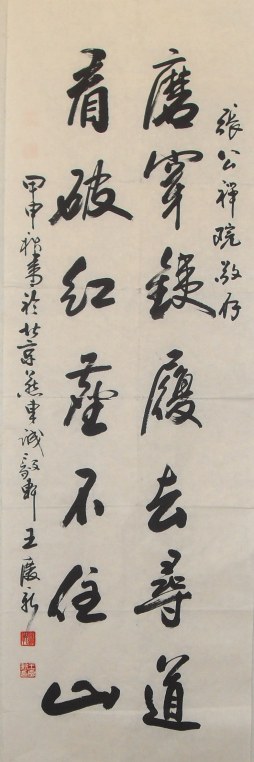 張公禅院敬存
磨穿鐵履去尋道
看破红塵不住山
甲申秋書於北京燕東诚毅軒王慶新